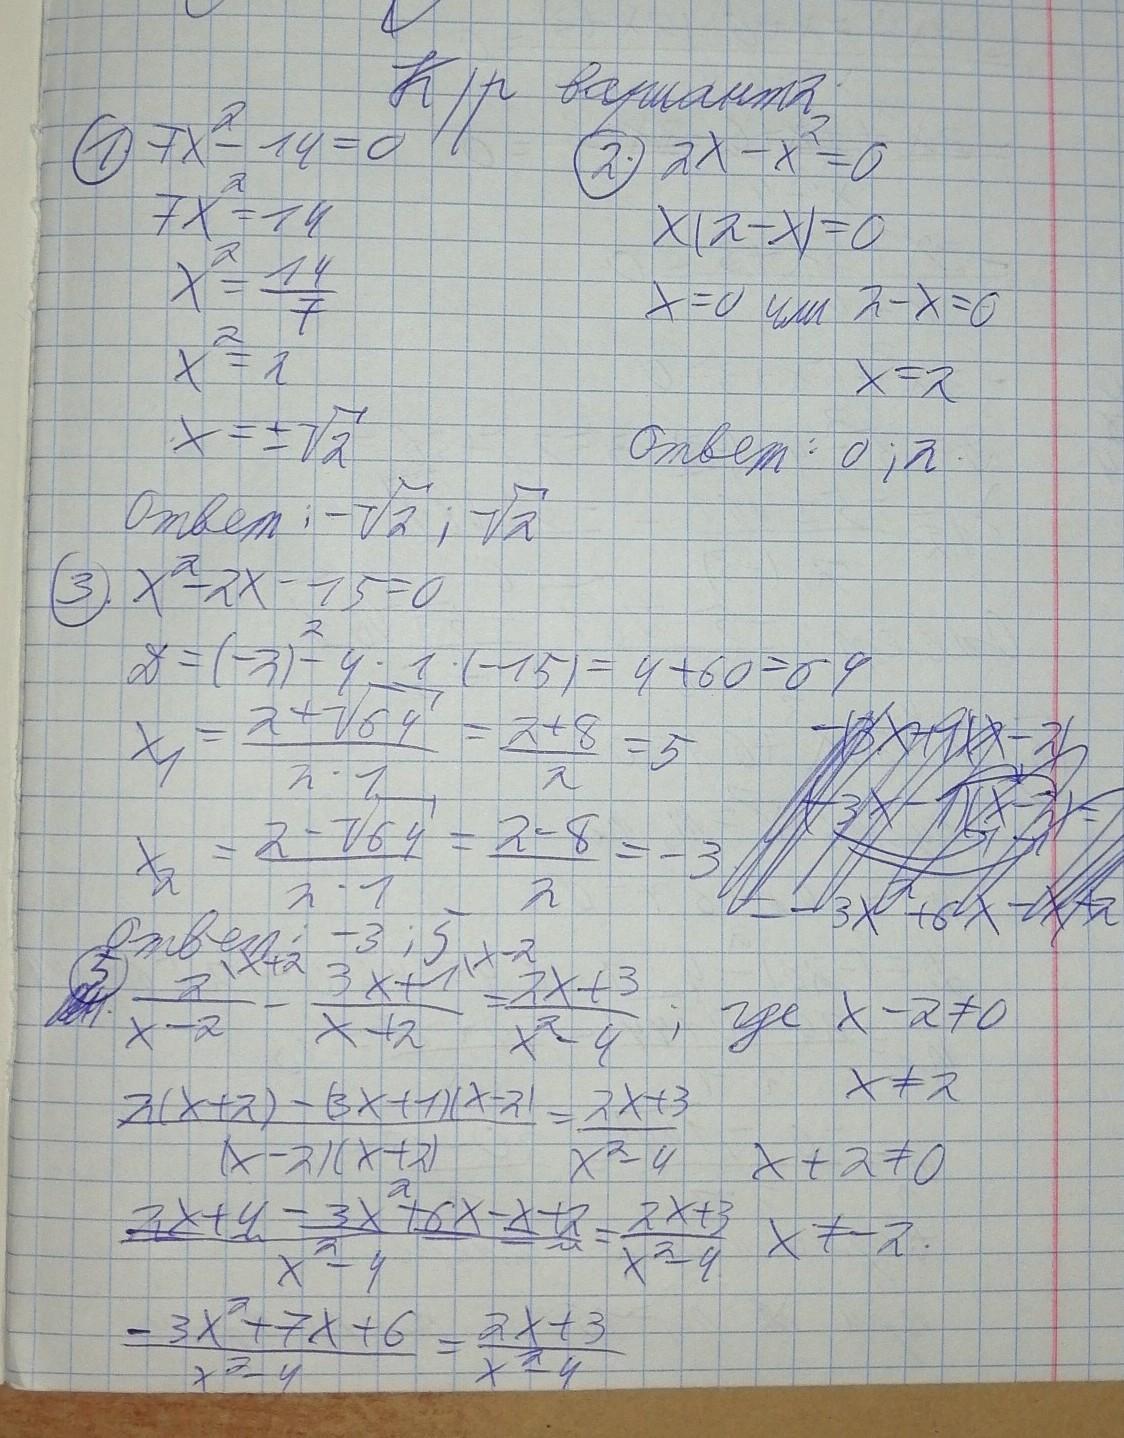 К/р вариант 2.
① 7x² - 14 = 0
7x² = 14
x² = 14/7
x² = 2
x = ±√2
Ответ: -√2 ; √2
②. 2x - x² = 0
x(2-x) = 0
x = 0 или 2-x=0
x = 2
Ответ: 0 ; 2.
③. x² - 2x - 15 = 0
D = (-2)² - 4 · 1 · (-15) = 4 + 60 = 64
x₁ = (2+√64)/(2·1) = (2+8)/2 = 5
x₂ = (2-√64)/(2·1) = (2-8)/2 = -3
Ответ: -3 ; 5
⑤ 2\x+2/(x-2) - 3x+1\x-2/(x+2) = (2x+3)/(x²-4) ; где x-2≠0
x≠2
(2(x+2) - (3x+1)(x-2))/((x-2)(x+2)) = (2x+3)/(x²-4)
x+2≠0
(2x+4 - 3x²+6x-x+2)/(x²-4) = (2x+3)/(x²-4)
x≠-2.
(-3x²+7x+6)/(x²-4) = (2x+3)/(x²-4)